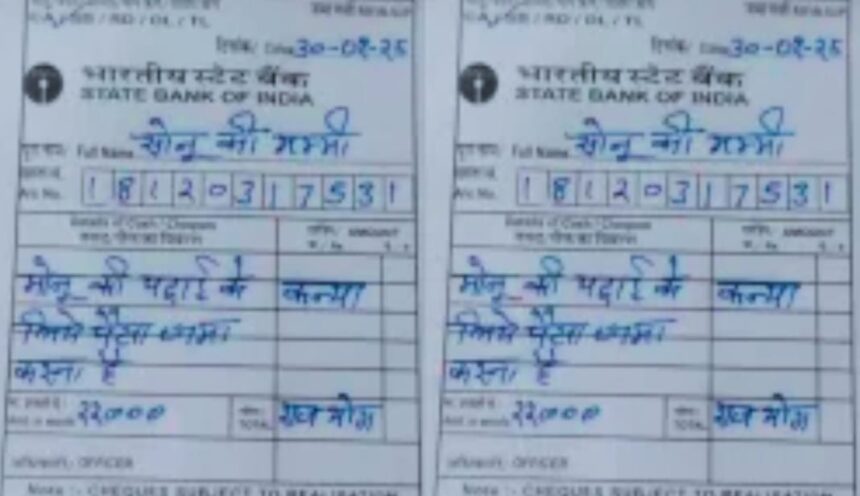 CA / SB / RD / DL / TL
दिनांक/ Date 30-08-25
भारतीय स्टेट बैंक
STATE BANK OF INDIA
Full Name सोनू की मम्मी
18120317531
Details of Cash / Cheques
AMOUNT
मोनू की पढाई के कन्या
लिये पैसा जमा
करना है
२२०००
TOTAL राशी मीम
OFFICER
Note :- CHEQUES SUBJECT TO REALISATION
CA / SB / RD / DL / TL
दिनांक/ Date 30-08-25
भारतीय स्टेट बैंक
STATE BANK OF INDIA
Full Name सोनू की मम्मी
18120317531
Details of Cash / Cheques
AMOUNT
मोनू की पढाई के कन्या
लिये पैसा जमा
करना है
२२०००
TOTAL
OFFICER
Note :- CHEQUES SUBJECT TO REALISATION